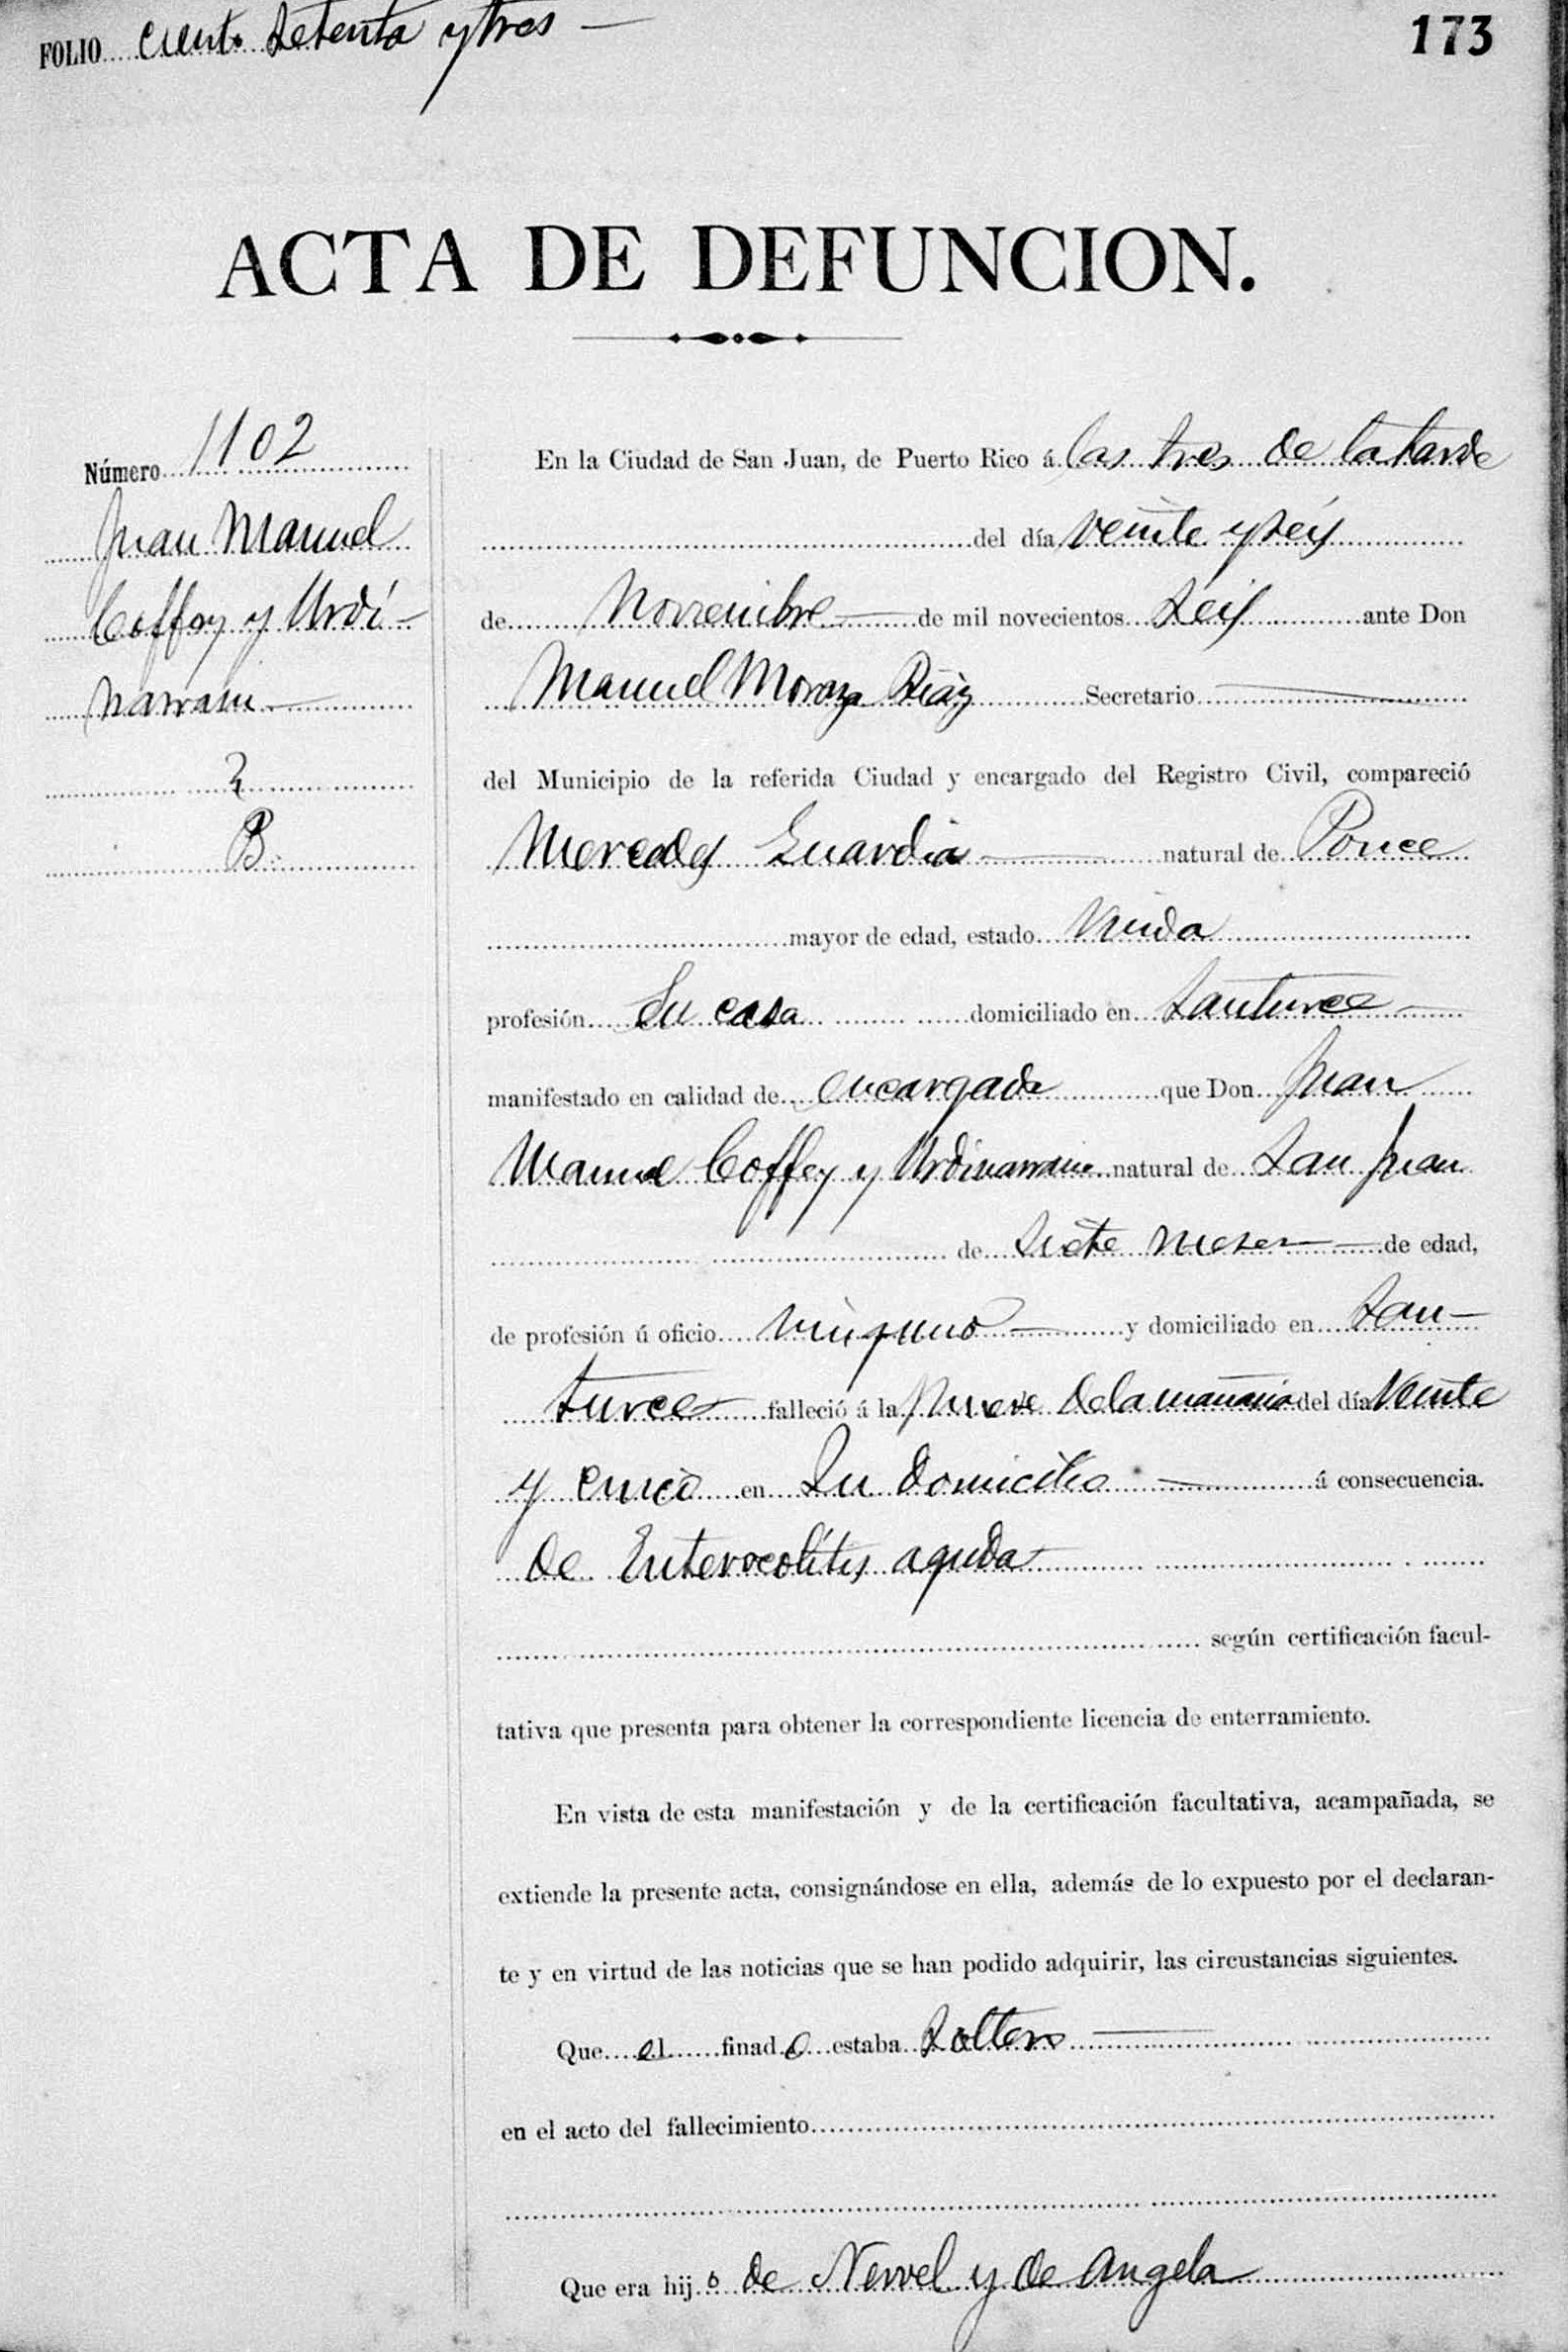 FOLIO ciento setenta y tres —
173
ACTA DE DEFUNCION.
Número 1102
Juan Manuel
Coffey y Urdi-
narrain —
2
B
En la Ciudad de San Juan, de Puerto Rico á las tres de la tarde
del día veinte y seis
de Noviembre — de mil novecientos seis ante Don
Manuel Moraza Díaz Secretario —
del Municipio de la referida Ciudad y encargado del Registro Civil, compareció
Mercedes Guardia — natural de Ponce
mayor de edad, estado Viuda
profesión Su casa domiciliado en Santurce —
manifestado en calidad de encargada que Don Juan
Manuel Coffey y Urdinarrain natural de San Juan
de siete meses — de edad,
de profesión ú oficio ninguno — y domiciliado en San-
turce — falleció á la nueve de la mañana del día Veinte
y cinco en Su domicilio — á consecuencia.
de Enterocolitis aguda —
según certificación facul-
tativa que presenta para obtener la correspondiente licencia de enterramiento.
En vista de esta manifestación y de la certificación facultativa, acampañada, se
extiende la presente acta, consignándose en ella, además de lo expuesto por el declaran-
te y en virtud de las noticias que se han podido adquirir, las circustancias siguientes.
Que el finado estaba Soltero —
en el acto del fallecimiento
Que era hijo de y de Angela